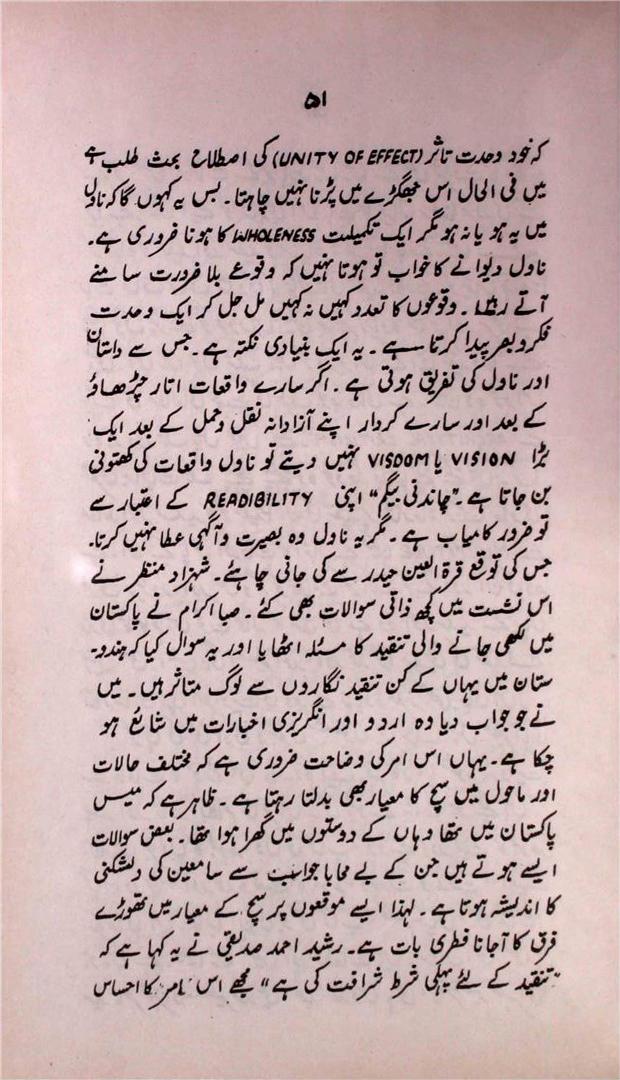 ۵۱
کہ خود وحدت تاثر (UNITY OF EFFECT) کی اصطلاح بحث طلب ہے
میں فی الحال اس جھگڑے میں پڑنا نہیں چاہتا۔ بس یہ کہوں گا کہ ناول
میں یہ ہو یا نہ ہو مگر ایک تکمیلت WHOLENESS کا ہونا ضروری ہے۔
ناول دیوانے کا خواب تو ہوتا نہیں کہ وقوعے بلا ضرورت سامنے
آتے رہیں۔ وقوعوں کا تعدد کہیں نہ کہیں مل جل کر ایک وحدت
فکر و بصر پیدا کرتا ہے۔ یہ ایک بنیادی نکتہ ہے۔ جس سے داستان
اور ناول کی تفریق ہوتی ہے۔ اگر سارے واقعات اتار چڑھاؤ
کے بعد اور سارے کردار اپنے آزادانہ نقل و حمل کے بعد ایک
بڑا VISION یا VISDOM نہیں دیتے تو ناول واقعات کی کھتونی
بن جاتا ہے۔ "چاندنی بیگم" اپنی READIBILITY کے اعتبار سے
تو ضرور کامیاب ہے۔ مگر یہ ناول وہ بصیرت و آگہی عطا نہیں کرتا۔
جس کی توقع قرۃ العین حیدر سے کی جانی چاہئے۔ شہزاد منظر نے
اس نشست میں کچھ ذاتی سوالات بھی کئے۔ صبا اکرام نے پاکستان
میں لکھی جانے والی تنقید کا مسئلہ اٹھایا اور یہ سوال کیا کہ ہندو۔
ستان میں یہاں کے کن تنقید نگاروں سے لوگ متاثر ہیں۔ میں
نے جو جواب دیا وہ اردو اور انگریزی اخبارات میں شائع ہو
چکا ہے۔ یہاں اس امر کی وضاحت ضروری ہے کہ مختلف حالات
اور ماحول میں سچ کا معیار بھی بدلتا رہتا ہے۔ ظاہر ہے کہ میں
پاکستان میں تھا وہاں کے دوستوں میں گھرا ہوا تھا۔ بعض سوالات
ایسے ہوتے ہیں جن کے بے محابا جواب سے سامعین کی دلشکنی
کا اندیشہ ہوتا ہے۔ لہٰذا ایسے موقعوں پر سچ کے معیار میں تھوڑے
فرق کا آجانا فطری بات ہے۔ رشید احمد صدیقی نے یہ کہا ہے کہ
"تنقید کے لئے پہلی شرط شرافت کی ہے" مجھے اس امر کا احساس